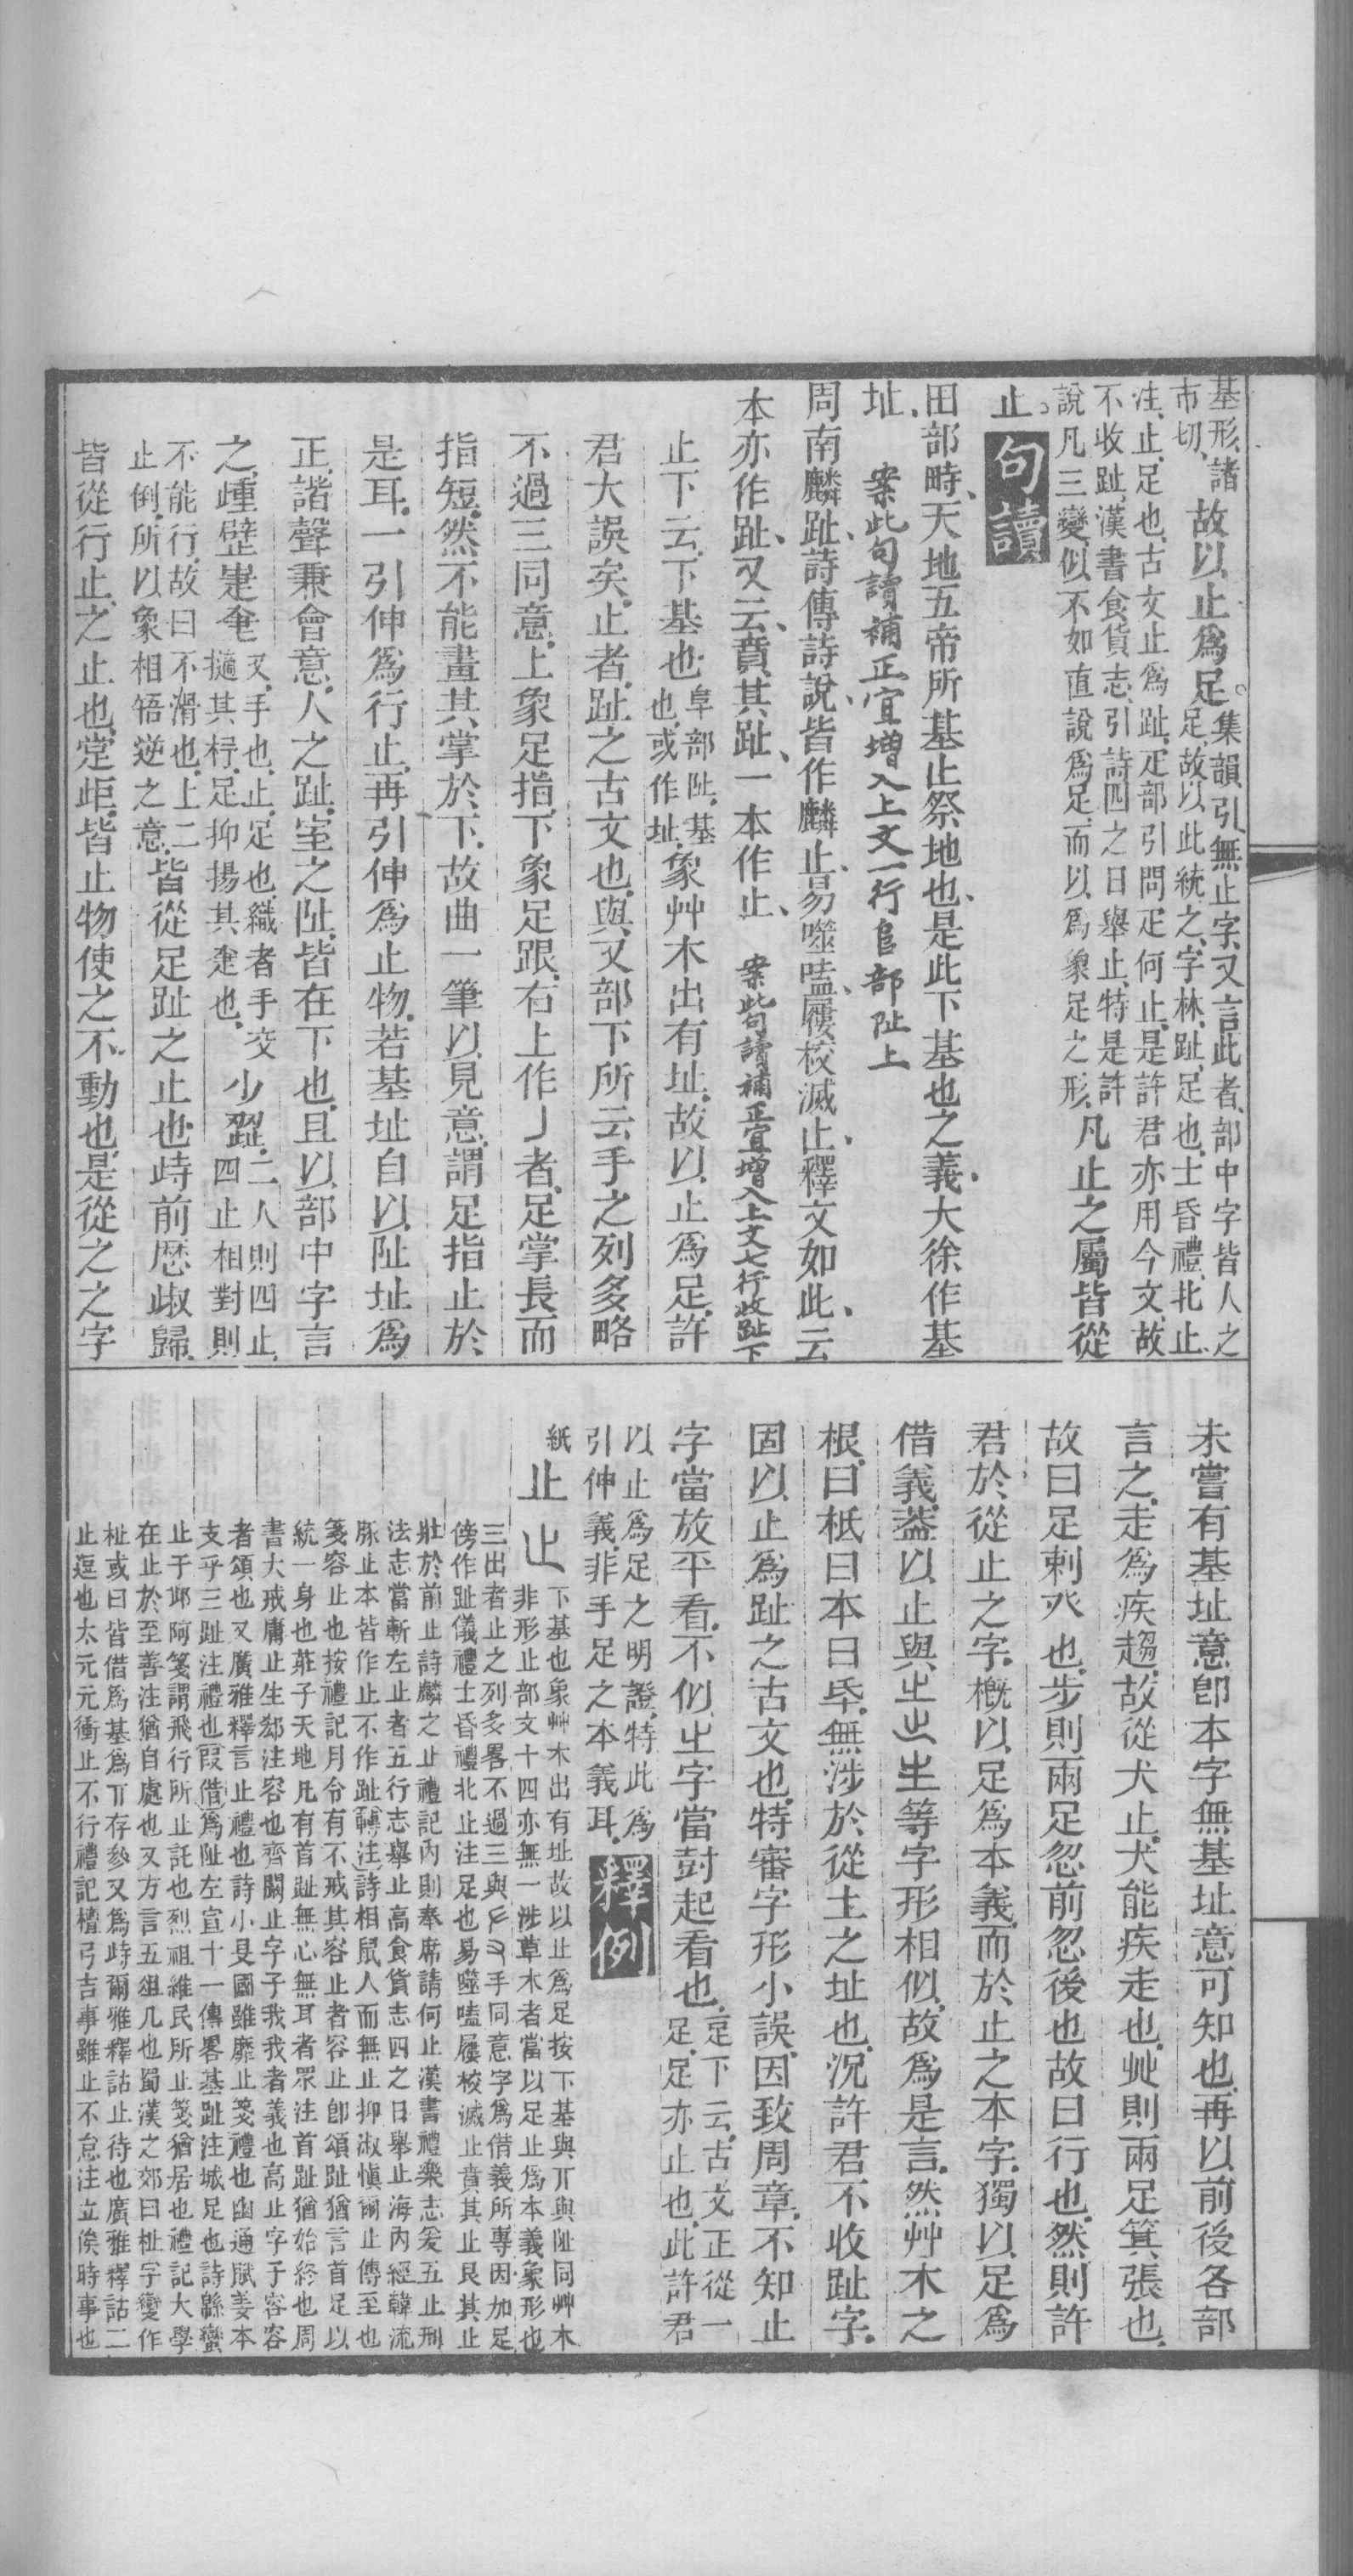 基形、諸
市切、
故以止爲足。
集韻引無止字、又言此者、部中字皆人之
足、故以此統之、字林、趾、足也、士昏禮、北止、
注、止、足也、古文止爲趾、疋部引問疋何止、是許君亦用今文、故
不收趾、漢書食貨志、引詩四之日舉止、特是許
說凡三變、似不如直說爲足、而以爲象足之形、
凡止之屬皆從
止。句讀
田部畤、天地五帝所基止祭地也、是此下基也之義、大徐作基
址、案此句讀補正宜增入上文一行𨸏部阯上
周南麟趾、詩傳詩說、皆作麟止、易噬嗑、屨校滅止、釋文如此、云
本亦作趾、又云、賁其趾、一本作止、案此句讀補正宜增入上文七行收趾下
止下云、下基也、
阜部阯、基
也、或作址、
象艸木出有址、故以止爲足、許
君大誤矣、止者、趾之古文也、與又部下所云手之列多略
不過三同意、上象足指、下象足跟、右上作丿者、足掌長而
指短、然不能畫其掌於下、故曲一筆以見意、謂足指止於
是耳、一引伸爲行止、再引伸爲止物、若基址自以阯址爲
正、諧聲兼會意、人之趾、室之阯、皆在下也、且以部中字言
之、歱躄疌𡴎
又、手也、止、足也、織者手交
擿其杼、足抑揚其疌也、
少澀、
二人則四止、
四止相對則
不能行、故曰不滑也、上二
止倒、所以象相啎逆之意、
皆從足趾之止也、歭前歷埱歸、
皆從行止之止也、定歫、皆止物使之不動也、是從之之字
未嘗有基址意、卽本字無基址意可知也、再以前後各部
言之、走爲疾趨、故從犬止、犬能疾走也、癶則兩足箕張也、
故曰足剌癶也、步則兩足忽前忽後也、故曰行也、然則許
君於從止之字、槪以足爲本義、而於止之本字、獨以足爲
借義、蓋以止與㞢出生等字形相似、故爲是言、然艸木之
根、曰柢曰本曰氐、無涉於從土之址也、況許君不收趾字、
固以止爲趾之古文也、特審字形小誤、因致周章、不知止
字當放平看、不似㞢字當豎起看也、
疋下云、古文正從一
足、足亦止也、此許君
以止爲足之明證、特此爲
引伸義、非手足之本義耳、
釋例
紙
止
止
下基也象艸木出有址故以止爲足按下基與丌與阯同艸木
非形止部文十四亦無一涉草木者當以足止爲本義象形也
三出者止之列多畧不過三與手同意字爲借義所專因加足
傍作趾儀禮士昏禮北止注足也易噬嗑屨校滅止賁其止艮其止
壯於前止詩麟之止禮記內則奉席請何止漢書禮樂志爰五止刑
法志當斬左止者五行志舉止高食貨志四之日舉止海內經韓流
豚止本皆作止不作趾轉注詩相鼠人而無止抑淑愼爾止傳至也
箋容止也按禮記月令有不戒其容止者容止卽頌趾猶言首足以
統一身也莊子天地凡有首趾無心無耳者眾注首趾猶始終也周
書大戒庸止生郄注容也齊闞止字子我我者義也高止字子容容
者頌也又廣雅釋言止禮也詩小旻國雖靡止箋禮也幽通賦姜本
支乎三趾注禮也叚借爲阯左宣十一傳畧基趾注城足也詩緜蠻
止于邱阿箋謂飛行所止託也烈祖維民所止箋猶居也禮記大學
在止於至善注猶自處也又方言五俎几也蜀漢之郊曰杫字變作
杫或曰皆借爲基爲丌存參又爲歭爾雅釋詁止待也廣雅釋詁二
止逗也太元元衝止不行禮記檀弓吉事雖止不怠注立俟時事也